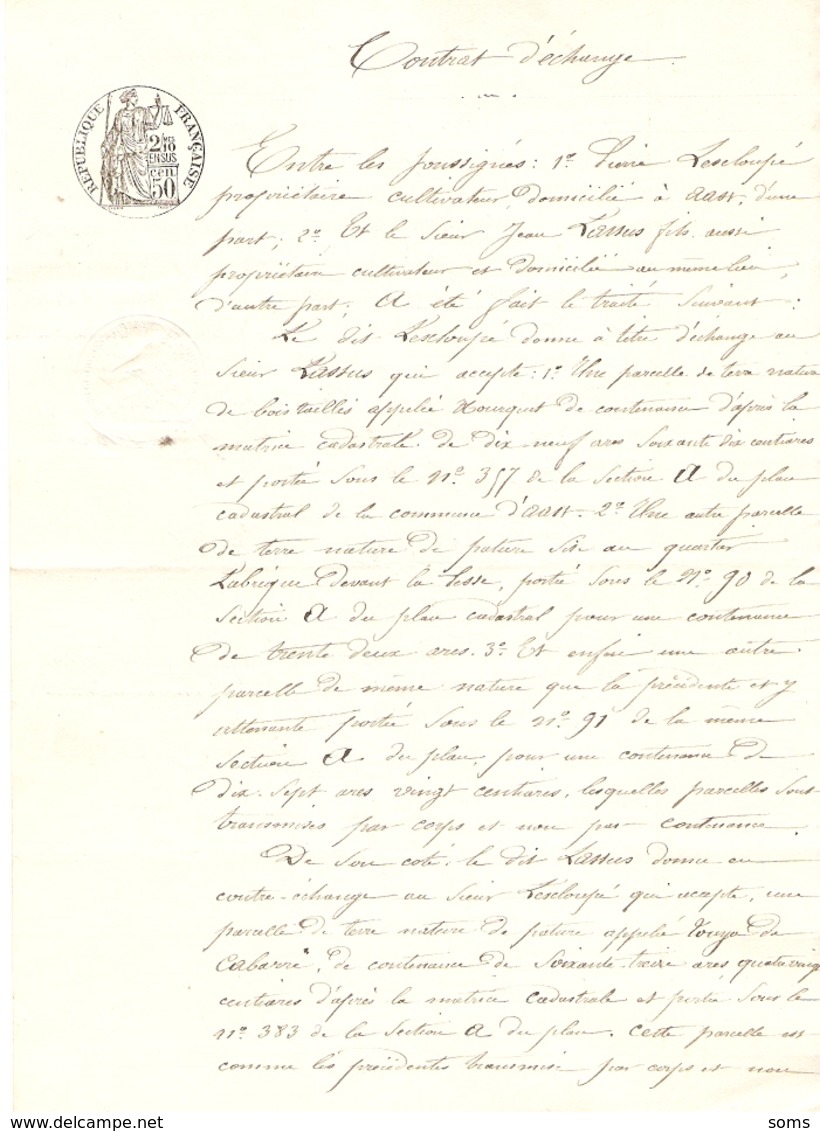 Contrat d'échange
REPUBLIQUE FRANÇAISE
2/10
EN SUS
50 CEN.
Entre les soussignés: 1o Pierre Lescloupé
propriétaire cultivateur, domicilié à aast, d'une
part; 2o Et le sieur Jean Lassus fils aussi
propriétaire cultivateur et domicilié au même lieu,
d'autre part; a été fait le traité suivant:
Le dit Lescloupé donne à titre d'échange au
sieur Lassus qui accepte: 1o Une parcelle de terre nature
de bois taillis appelée Hourquet de contenance d'après la
matrice cadastrale de dix neuf ares soixante dix centiares
et portée sous le No 357 de la section A du plan
cadastral de la commune d'aast. 2o Une autre parcelle
de terre nature de pature sise au quartier
Labrique devant la Lesse, portée sous le No 90 de la
section A du plan cadastral pour une contenance
de trente deux ares. 3o Et enfin une autre
parcelle de même nature que la précédente et y
attenante portée sous le No 91 de la même
section A du plan, pour une contenance de
dix-sept ares vingt centiares, lesquelles parcelles sont
transmises par corps et non par contenance.
De son coté, le dit Lassus donne en
contre-échange au sieur Lescloupé qui accepte, une
parcelle de terre nature de pature appelée Touya de
Cabarré, de contenance de soixante-treize ares quatre vingt
centiares d'après la matrice cadastrale et portée sous le
No 383 de la section A du plan. Cette parcelle est
comme les précédentes transmise par corps et non
soms